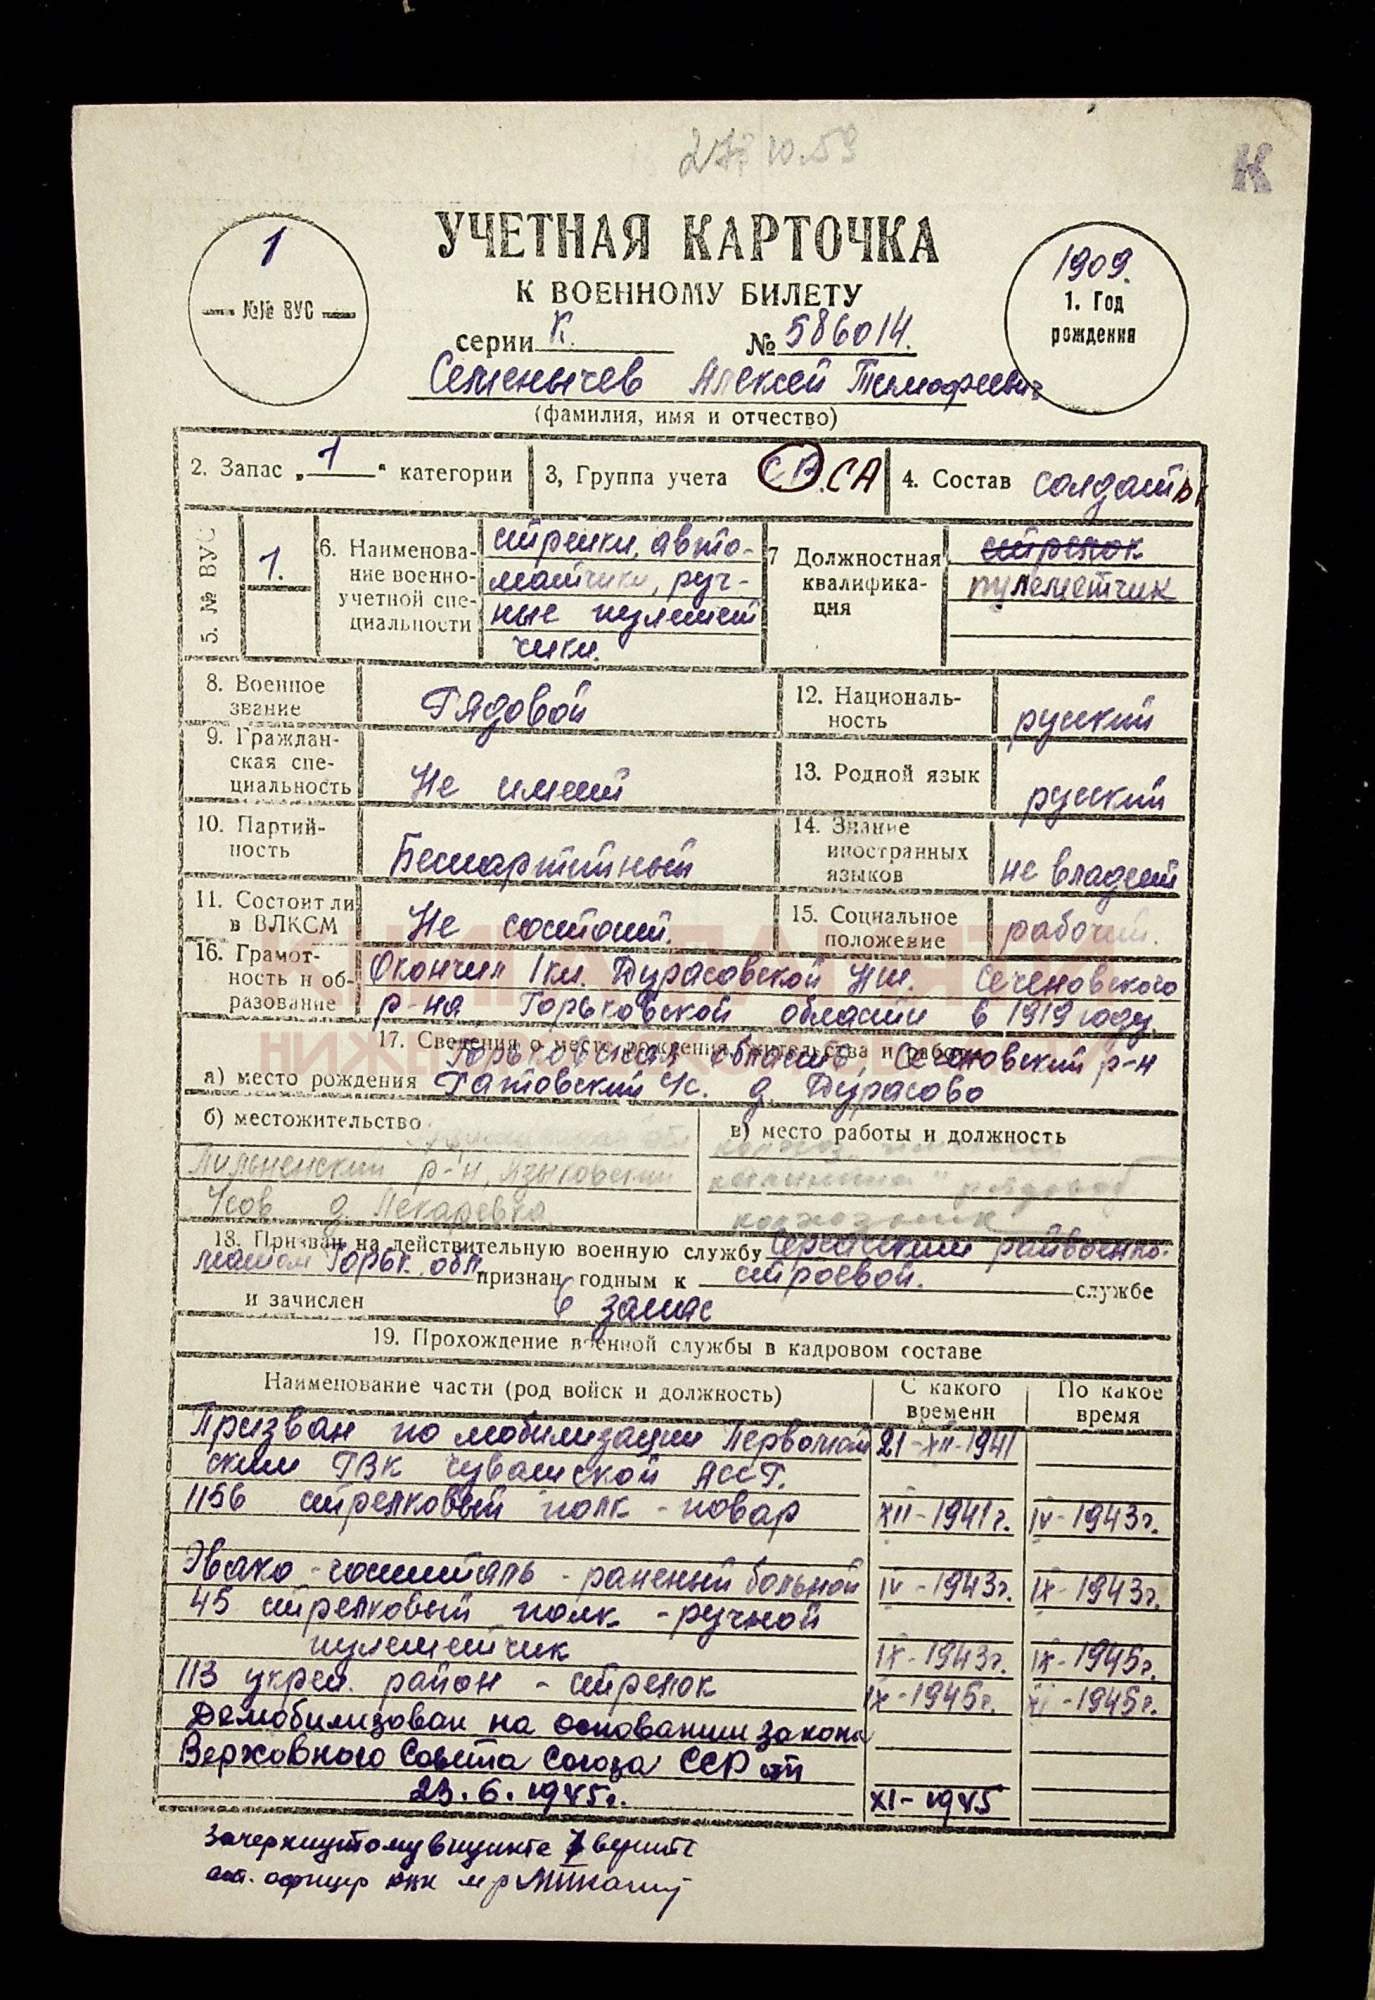 10.59
К
УЧЕТНАЯ КАРТОЧКА
К ВОЕННОМУ БИЛЕТУ
1
№№ ВУС
1909.
1. Год
рождения
серии К. № 586014.
Семенычев Алексей Тимофеевич
(фамилия, имя и отчество)
2. Запас „ 1 “ категории
3, Группа учета СВ. СА
4. Состав солдаты
5. № ВУС
1.
6. Наименова-
ние военно-
учетной спе-
циальности
стрелки, авто-
матчики, руч-
ные пулемет
чики.
7 Должностная
квалифика-
ция
стрелок
пулеметчик
8. Военное
звание
Рядовой
12. Националь-
ность
русский
9. Граждан-
ская спе-
циальность
Не имеет
13. Родной язык
русский
10. Партий-
ность
Беспартийный
14. Знание
иностранных
языков
не владеет
11. Состоит ли
в ВЛКСМ
Не состоит.
15. Социальное
положение
рабочий.
16. Грамот-
ность и об-
разование
Окончил 1кл. Дурасовской НШ. Сеченовского
р-на, Горьковской области в 1919 году.
17. Сведения о месте рождения, жительства и работы
Горьковская область, Сеченовский р-н
а) место рождения Ратовский с/с. д. Дурасово
б) местожительство
Пильненский р-н, Языковский
д. Пекаревка
в) место работы и должность
колхоз
рядовой
колхозник
18. Призван на действительную военную службу Сергачским райвоенко-
матом Горьк. обл. признан годным к строевой. службе
и зачислен в запас
19. Прохождение военной службы в кадровом составе
Наименование части (род войск и должность)
С какого
времени
По какое
время
Призван по мобилизации Первомай 21-XII-1941
ским РВК Чувашской АССР.
1156 стрелковый полк - повар XII-1941г. IV-1943г.
Эвако-госпиталь - раненый больной IV-1943г. IX-1943г.
45 стрелковый полк - ручной
пулеметчик IX-1943г. IX-1945г.
113 укреп. район - стрелок IX-1945г. XI-1945г.
Демобилизован на основании закона
Верховного Совета Союза ССР от
23.6.1945г. XI-1945
Зачеркнутому в пункте 7 верить
офицер
КНИГА ПАМЯТИ